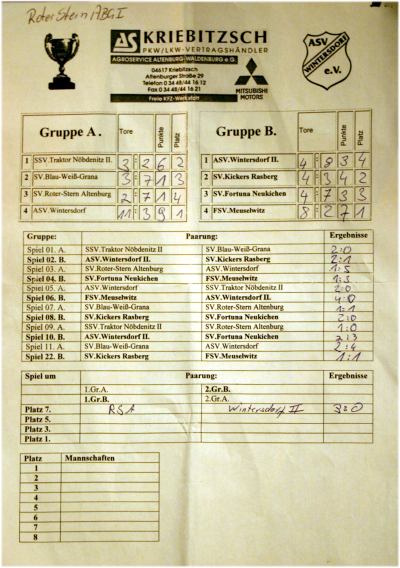 Roter Stern ABG I
AS KRIEBITZSCH
PKW/LKW-VERTRAGSHÄNDLER
AGROSERVICE ALTENBURG-WALDENBURG e.G.
04617 Kriebitzsch
Altenburger Straße 29
Telefon 0 34 48/44 16 12
Fax 0 34 48/44 16 21
Freie KFZ-Werkstatt
MITSUBISHI
MOTORS
ASV
WINTERSDORF
e.V.
Gruppe A. Tore Punkte Platz
1 SSV.Traktor Nöbdenitz II 3 : 2 6 2
2 SV.Blau-Weiß-Grana 3 : 7 1 3
3 SV.Roter-Stern Altenburg 2 : 7 1 4
4 ASV.Wintersdorf 11 : 3 9 1
Gruppe B. Tore Punkte Platz
1 ASV.Wintersdorf II. 4 : 8 3 4
2 SV.Kickers Rasberg 4 : 3 4 2
3 SV.Fortuna Neukichen 4 : 7 3 3
4 FSV.Meuselwitz 8 : 2 7 1
Gruppe: Paarung: Ergebnisse
Spiel 01. A. SSV.Traktor Nöbdenitz II SV.Blau-Weiß-Grana 2:0
Spiel 02. B. ASV.Wintersdorf II. SV.Kickers Rasberg 2:1
Spiel 03. A. SV.Roter-Stern Altenburg ASV.Wintersdorf 1:5
Spiel 04. B. SV.Fortuna Neukichen FSV.Meuselwitz 1:3
Spiel 05. A. ASV.Wintersdorf SSV.Traktor Nöbdenitz II 2:0
Spiel 06. B. FSV.Meuselwitz ASV.Wintersdorf II. 4:0
Spiel 07. A. SV.Blau-Weiß-Grana SV.Roter-Stern Altenburg 1:1
Spiel 08. B. SV.Kickers Rasberg SV.Fortuna Neukichen 2:0
Spiel 09. A. SSV.Traktor Nöbdenitz II SV.Roter-Stern Altenburg 1:0
Spiel 10. B. ASV.Wintersdorf II. SV.Fortuna Neukichen 2:3
Spiel 11. A. SV.Blau-Weiß-Grana ASV.Wintersdorf 2:4
Spiel 22. B. SV.Kickers Rasberg FSV.Meuselwitz 1:1
Spiel um Paarung: Ergebnisse
1.Gr.A. 2.Gr.B.
1.Gr.B. 2.Gr.A.
Platz 7. RSA Wintersdorf II 3:0
Platz 5.
Platz 3.
Platz 1.
Platz Mannschaften
1
2
3
4
5
6
7
8